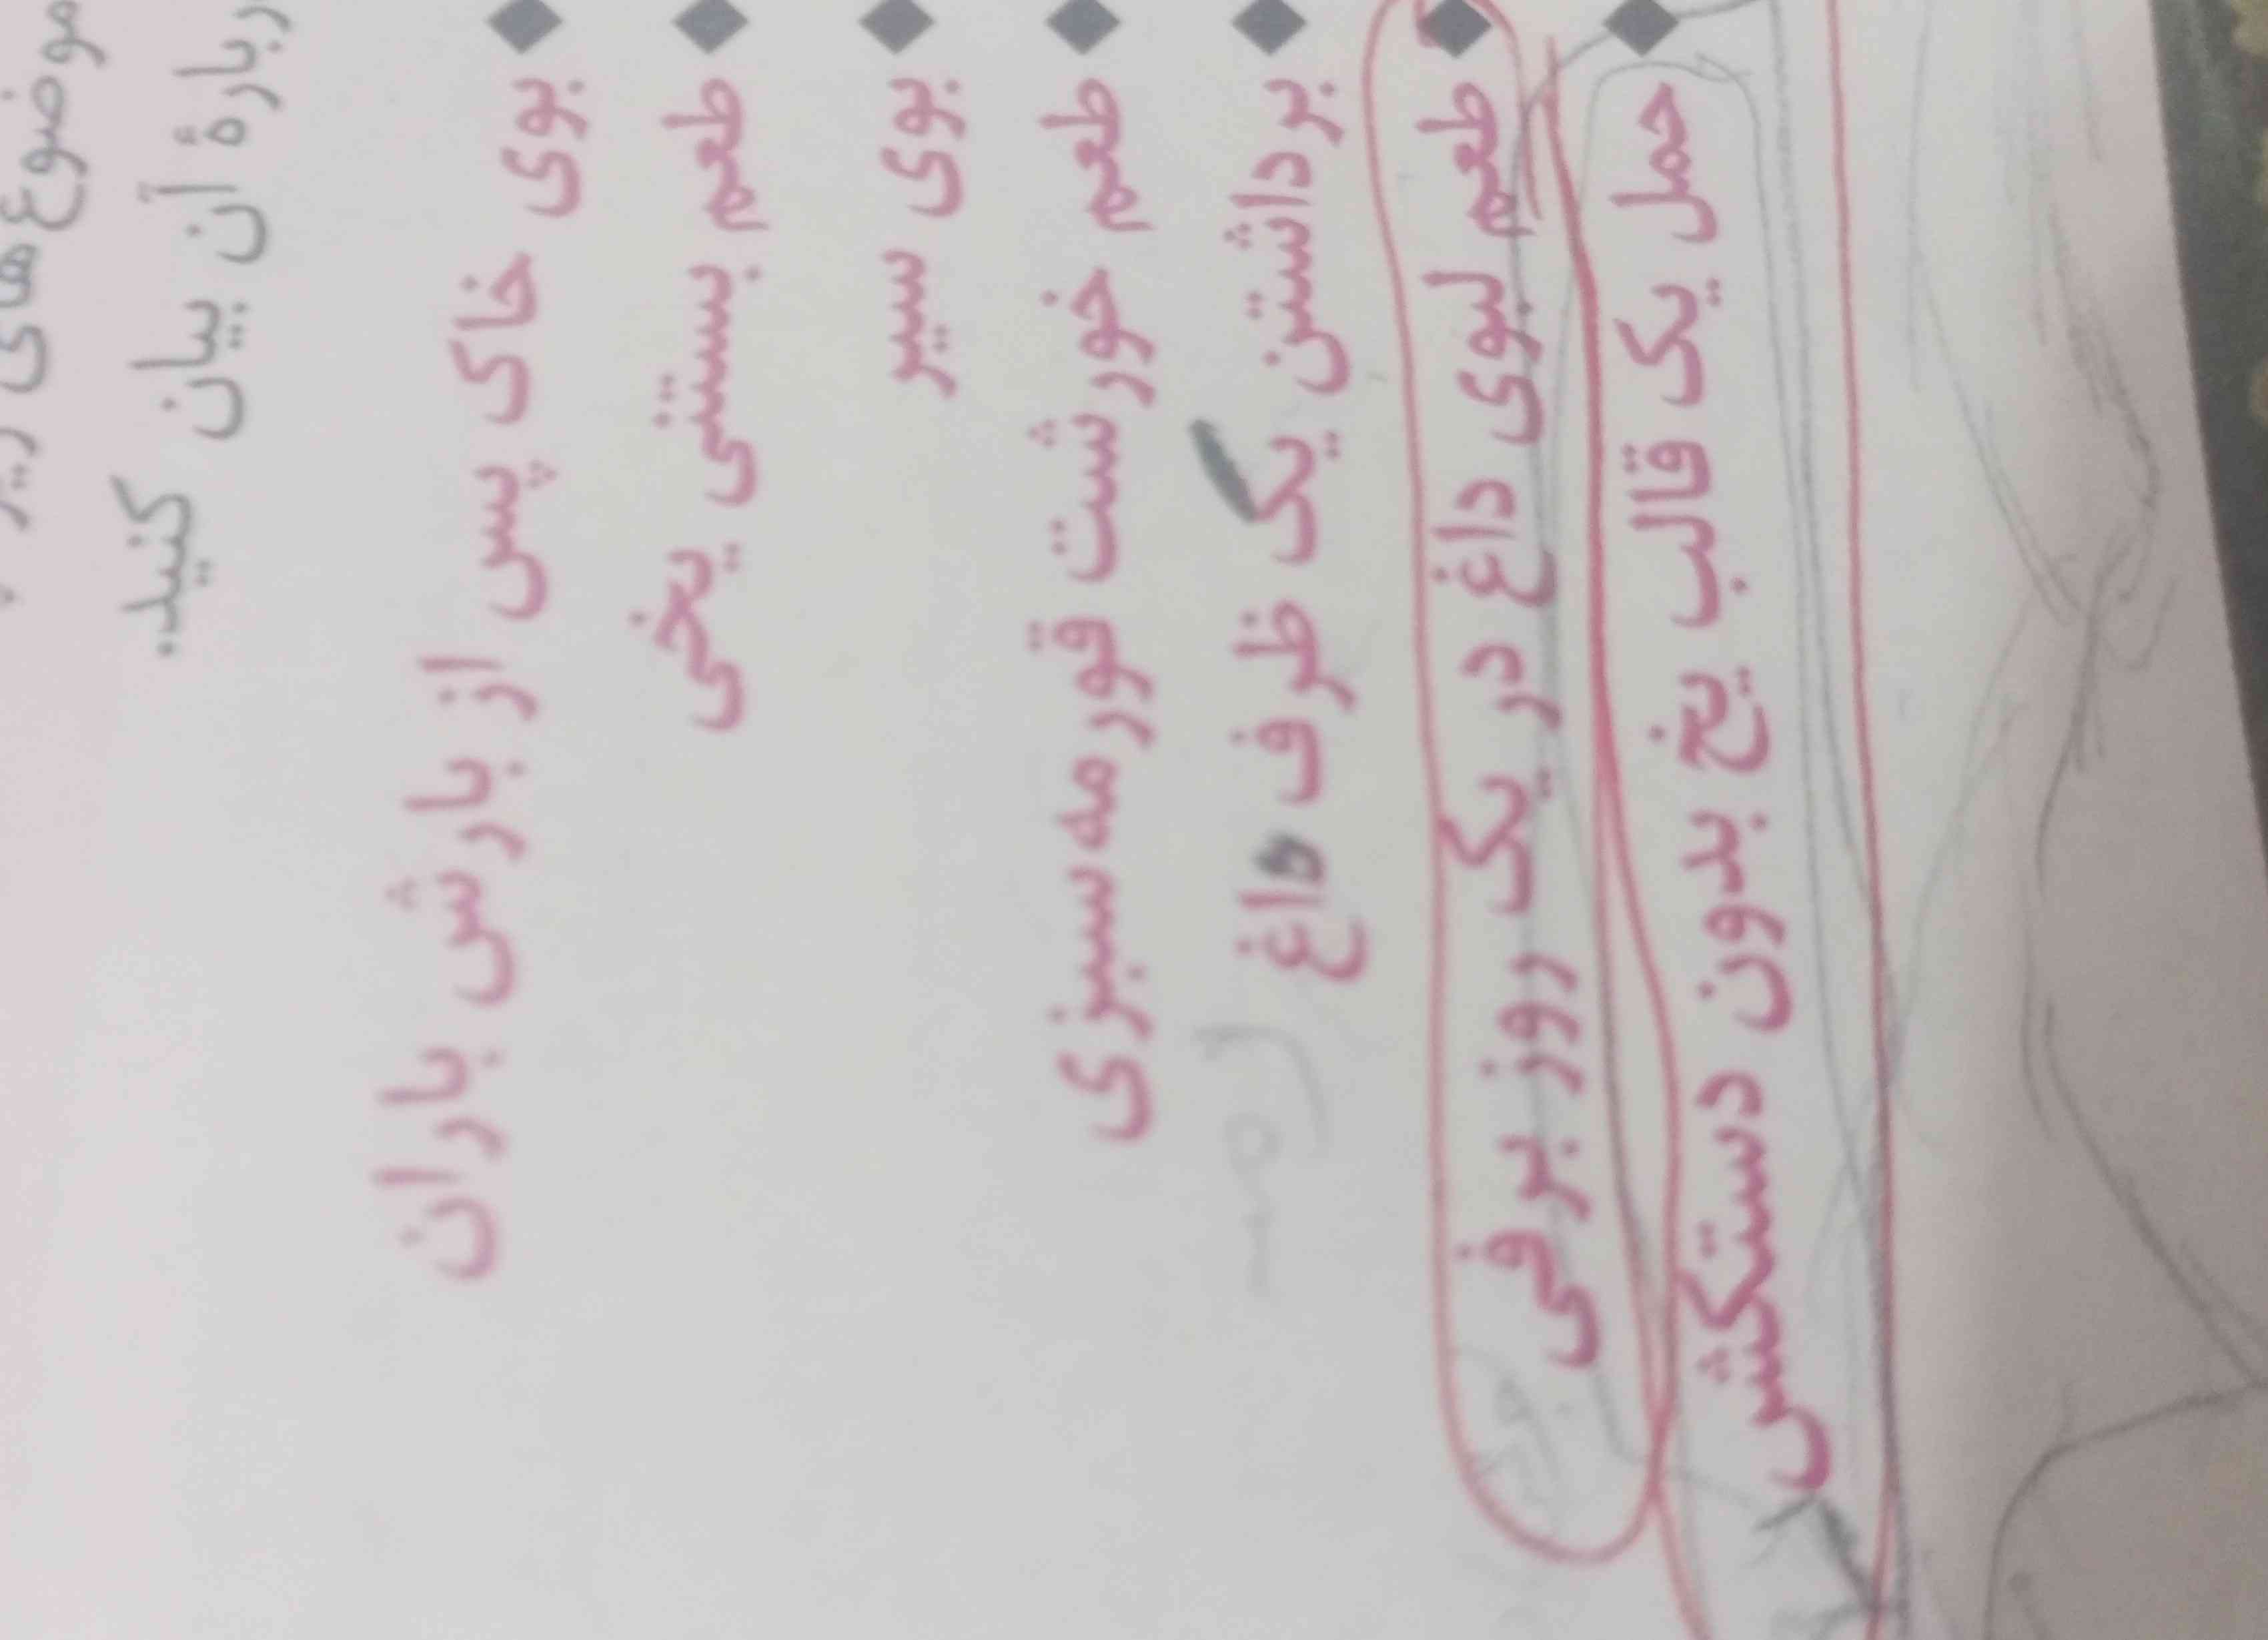 موضوع‌های زیر
درباره‌ٔ آن بیان کنید.
بوی خاک پس از بارش باران
طعم بستنی یخی
بوی سیر
طعم خورشت قورمه‌سبزی
برداشتن یک ظرف داغ
طعم لبوی داغ در یک روز برفی
حمل یک قالب یخ بدون دستکش